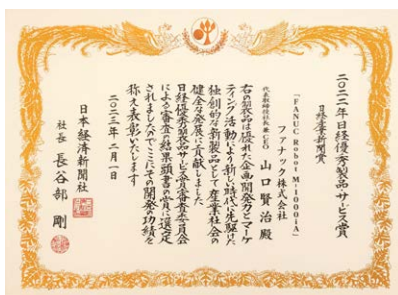 二〇二二年日経優秀製品・サービス賞
日経産業新聞賞
「FANUC Robot M-1000iA」
ファナック株式会社
代表取締役社長 兼 CEO 山口賢治 殿
右の製品は優れた企画開発力とマーケ
ティング活動により新しい時代に先駆けた
独創的な新製品として産業社会の
健全な発展に貢献しました
日経優秀製品・サービス賞審査委員会
による審査の結果頭書の賞に選定
されましたのでここにその開発の功績を
称え表彰いたします
二〇二三年 二月一日
日本経済新聞社
社長 長谷部 剛